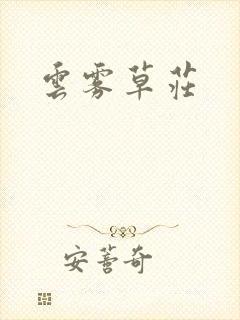 雲霧草莊
安薔奇